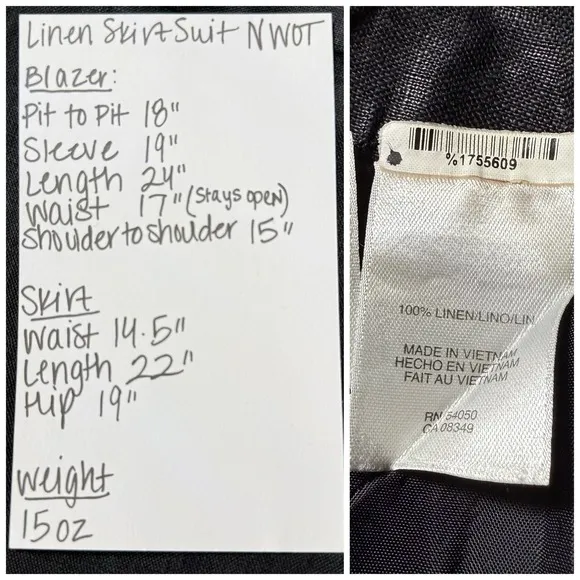 Linen Skirt Suit NWOT
Blazer:
Pit to Pit 18"
Sleeve 19"
Length 24"
Waist 17" (Stays open)
Shoulder to shoulder 15"
Skirt
Waist 14.5"
Length 22"
Hip 19"
Weight
15 oz
%1755609
100% LINEN/LINO/LIN
MADE IN VIETNAM
HECHO EN VIETNAM
FAIT AU VIETNAM
RN 54050
CA 08349